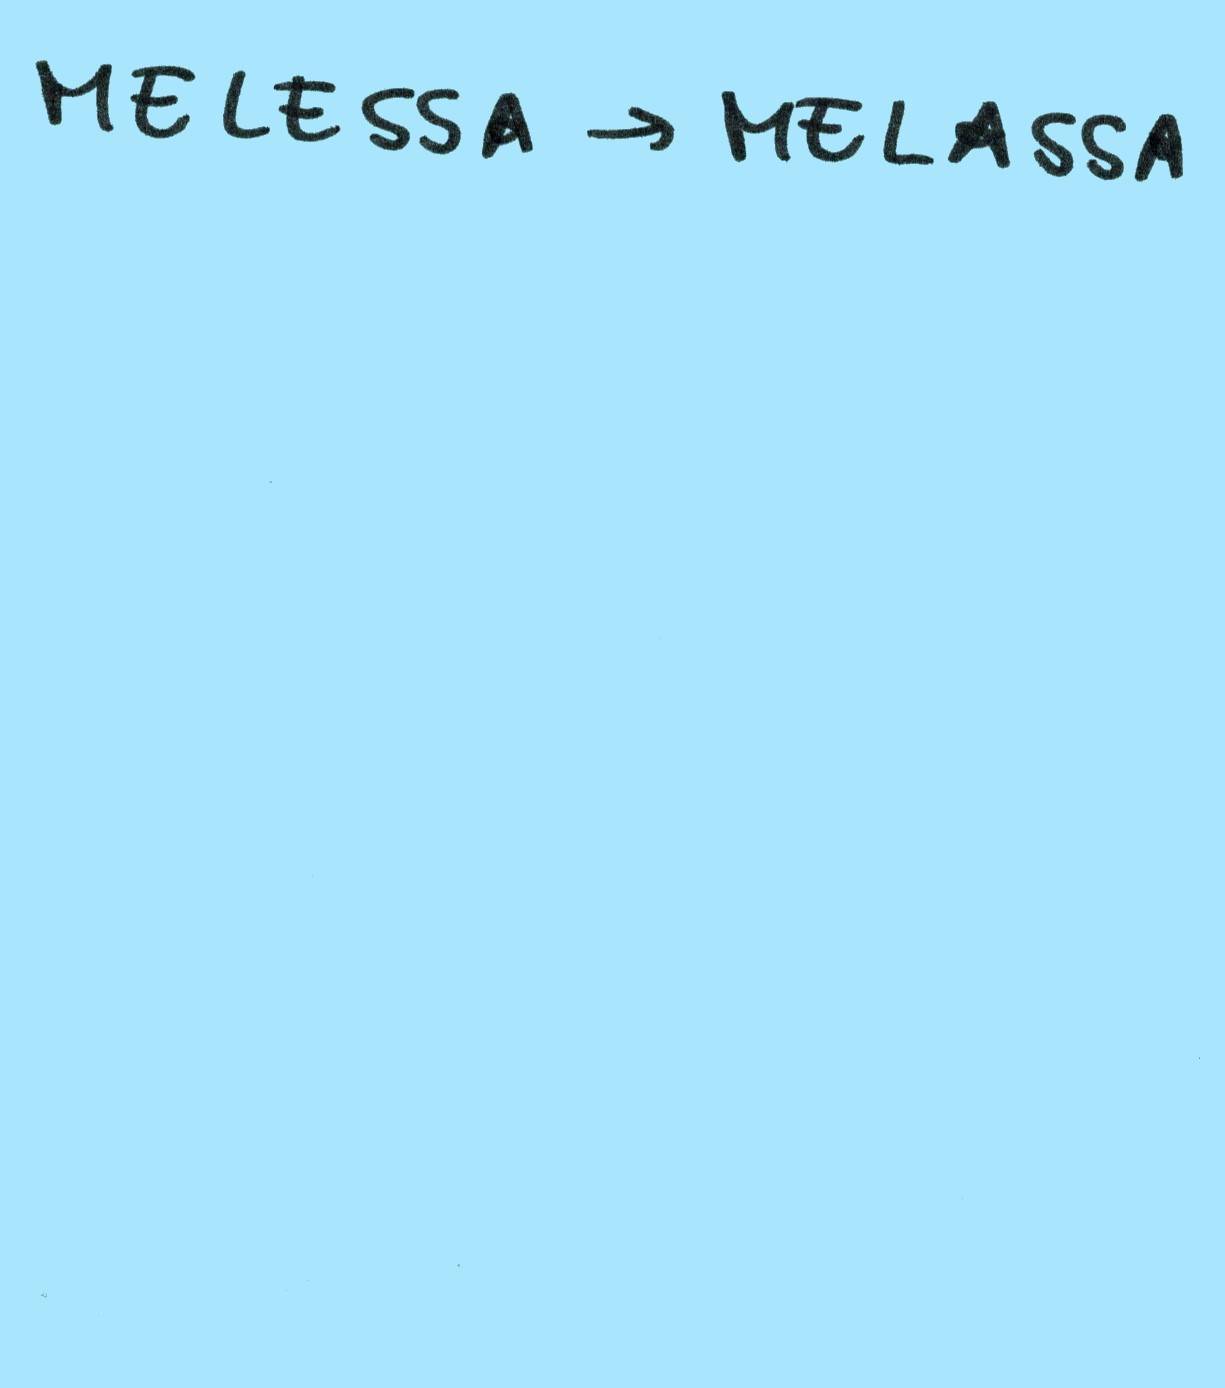 MELESSA → MELASSA